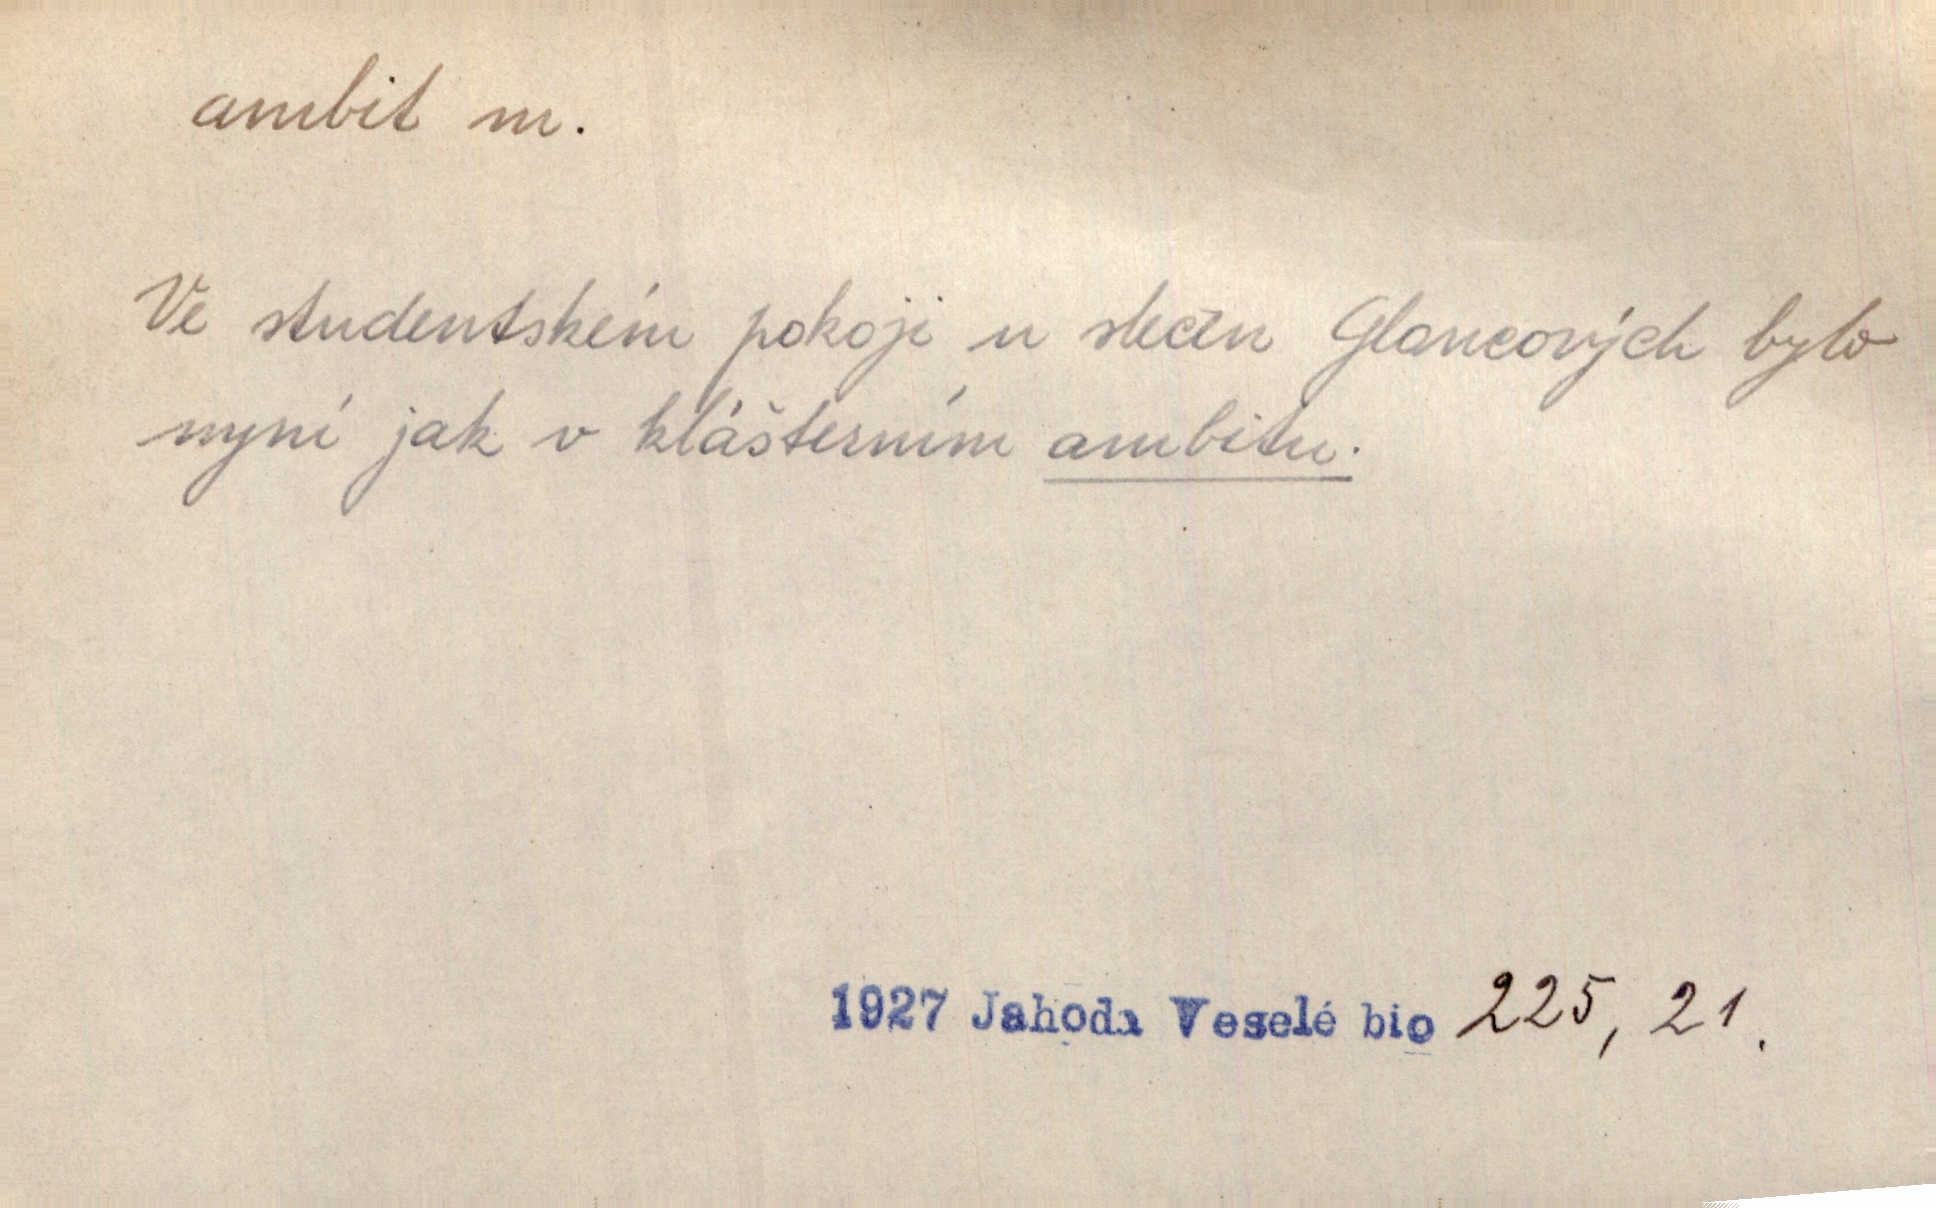 ambit m.
Ve studentském pokoji u slečen Glancových bylo
nyní jak v klášterním ambitu.
1927 Jahoda Veselé bio 225, 21.